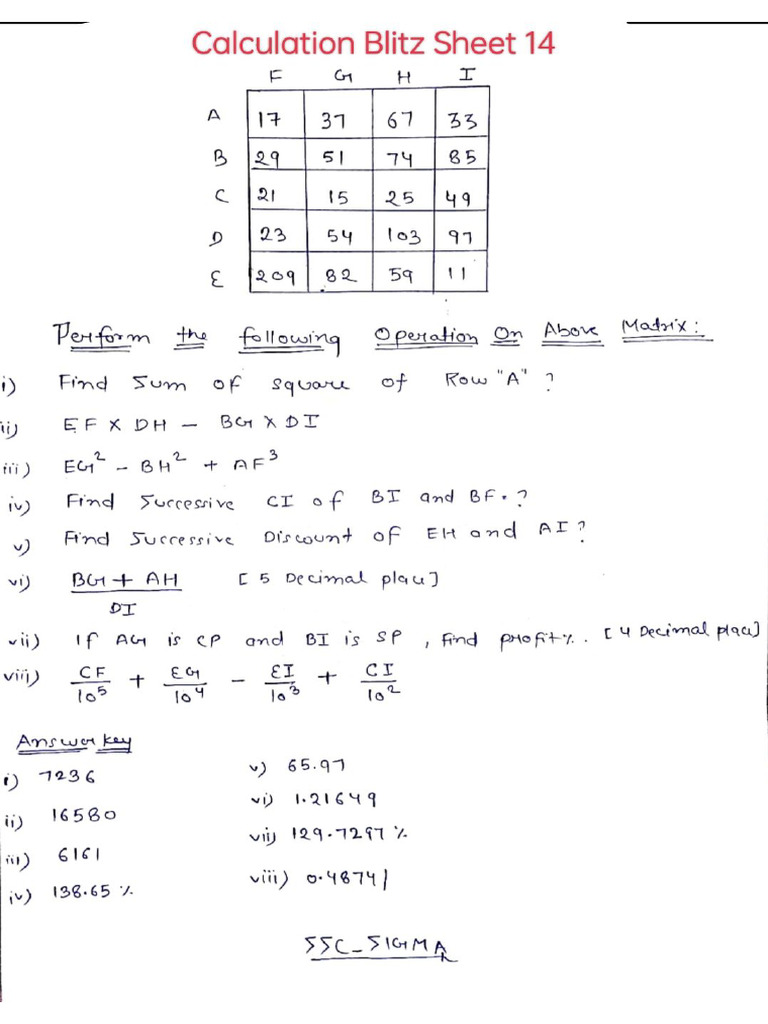 Calculation Blitz Sheet 14
F G H I
A 17 37 67 33
B 29 51 74 85
C 21 15 25 49
D 23 54 103 97
E 209 82 59 11
Perform the following Operation On Above Matrix:
i) Find Sum of square of Row "A" ?
ii) EF × DH - BG × DI
iii) EG² - BH² + AF³
iv) Find Successive CI of BI and BF. ?
v) Find Successive Discount of EH and AI ?
vi) BG + AH / DI [ 5 Decimal place]
vii) If AG is CP and BI is SP , find profit%. [ 4 Decimal place]
viii) CF/10⁵ + EG/10⁴ - EI/10³ + CI/10²
Answer key
i) 7236
ii) 16580
iii) 6161
iv) 138.65 %
v) 65.97
vi) 1.21649
vii) 129.7297 %
viii) 0.48741
SSC_SIGMA